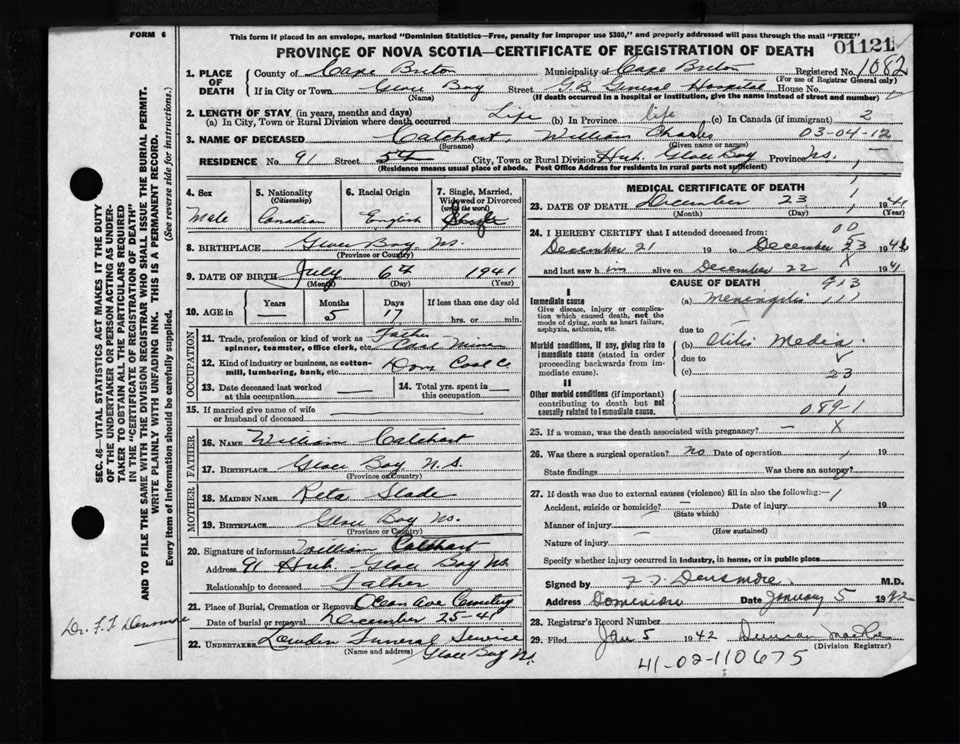 This form if placed in an envelope, marked "Dominion Statistics—Free, penalty for improper use $300," and properly addressed will pass through the mail "FREE"
FORM 6
PROVINCE OF NOVA SCOTIA—CERTIFICATE OF REGISTRATION OF DEATH
01121
1. PLACE OF DEATH
County of Cape Breton Municipality of Cape Breton Registered No. 1082
(For use of Registrar General only)
If in City or Town Glace Bay Street Hospital House No.
(Name) (If death occurred in a hospital or institution, give the name instead of street and number)
2. LENGTH OF STAY (in years, months and days)
(a) In City, Town or Rural Division where death occurred Life (b) In Province life (c) In Canada (if immigrant) 2
3. NAME OF DECEASED Calehart, William Charles 03-04-12
(Surname) (Given name or names)
RESIDENCE No. 91 Street 5th City, Town or Rural Division Hub. Glace Bay Province Ns.
(Residence means usual place of abode. Post Office Address for residents in rural parts not sufficient)
4. Sex
Male
5. Nationality (Citizenship)
Canadian
6. Racial Origin
English
7. Single, Married, Widowed or Divorced (write the word)
Single
8. BIRTHPLACE Glace Bay Ns.
(Province or Country)
9. DATE OF BIRTH July 6th 1941
(Month) (Day) (Year)
10. AGE in Years — Months 5 Days 17 If less than one day old hrs. or min.
OCCUPATION
11. Trade, profession or kind of work as spinner, teamster, office clerk, etc. Father Coal Miner
12. Kind of industry or business, as cotton-mill, lumbering, bank, etc. Dom Coal Co.
13. Date deceased last worked at this occupation
14. Total yrs. spent in this occupation
15. If married give name of wife or husband of deceased
FATHER
16. NAME William Calehart
17. BIRTHPLACE Glace Bay N.S.
(Province or Country)
MOTHER
18. MAIDEN NAME Reta Slade
19. BIRTHPLACE Glace Bay Ns.
(Province or Country)
20. Signature of informant William Calehart
Address 91 Hub. Glace Bay Ns.
Relationship to deceased Father
21. Place of Burial, Cremation or Removal Ocean Ave Cemetery
Date of burial or removal December 25-41
22. UNDERTAKER Lowden Funeral Service
(Name and address) Glace Bay Ns.
MEDICAL CERTIFICATE OF DEATH
23. DATE OF DEATH December 23 1941
(Month) (Day) (Year)
24. I HEREBY CERTIFY that I attended deceased from:
December 21 19 to December 23 1941
and last saw him alive on December 22 1941
CAUSE OF DEATH
I
Immediate cause
Give disease, injury or complication which caused death, not the mode of dying, such as heart failure, asphyxia, asthenia, etc.
(a) Meningitis
due to
Morbid conditions, if any, giving rise to immediate cause (stated in order proceeding backwards from immediate cause).
(b) Otitis Media.
due to
(c) 23
II
Other morbid conditions (if important) contributing to death but not causally related to immediate cause.
089-1
25. If a woman, was the death associated with pregnancy? — X
26. Was there a surgical operation? no Date of operation 19
State findings Was there an autopsy?
27. If death was due to external causes (violence) fill in also the following:—
Accident, suicide or homicide? — Date of injury 19
(State which)
Manner of injury —
(How sustained)
Nature of injury
Specify whether injury occurred in industry, in home, or in public place
Signed by F.F. Densmore M.D.
Address Dominion Date January 5 1942
28. Registrar's Record Number
29. Filed Jan 5 1942 Duncan MacRae
(Division Registrar)
41-02-110675
SEC. 46—VITAL STATISTICS ACT MAKES IT THE DUTY
OF THE UNDERTAKER OR PERSON ACTING AS UNDERTAKER TO OBTAIN ALL THE PARTICULARS REQUIRED
IN THE "CERTIFICATE OF REGISTRATION OF DEATH"
AND TO FILE THE SAME WITH THE DIVISION REGISTRAR WHO SHALL ISSUE THE BURIAL PERMIT.
WRITE PLAINLY WITH UNFADING INK. THIS IS A PERMANENT RECORD.
Every item of information should be carefully supplied. (See reverse side for instructions.)
Dr. F.F. Densmore